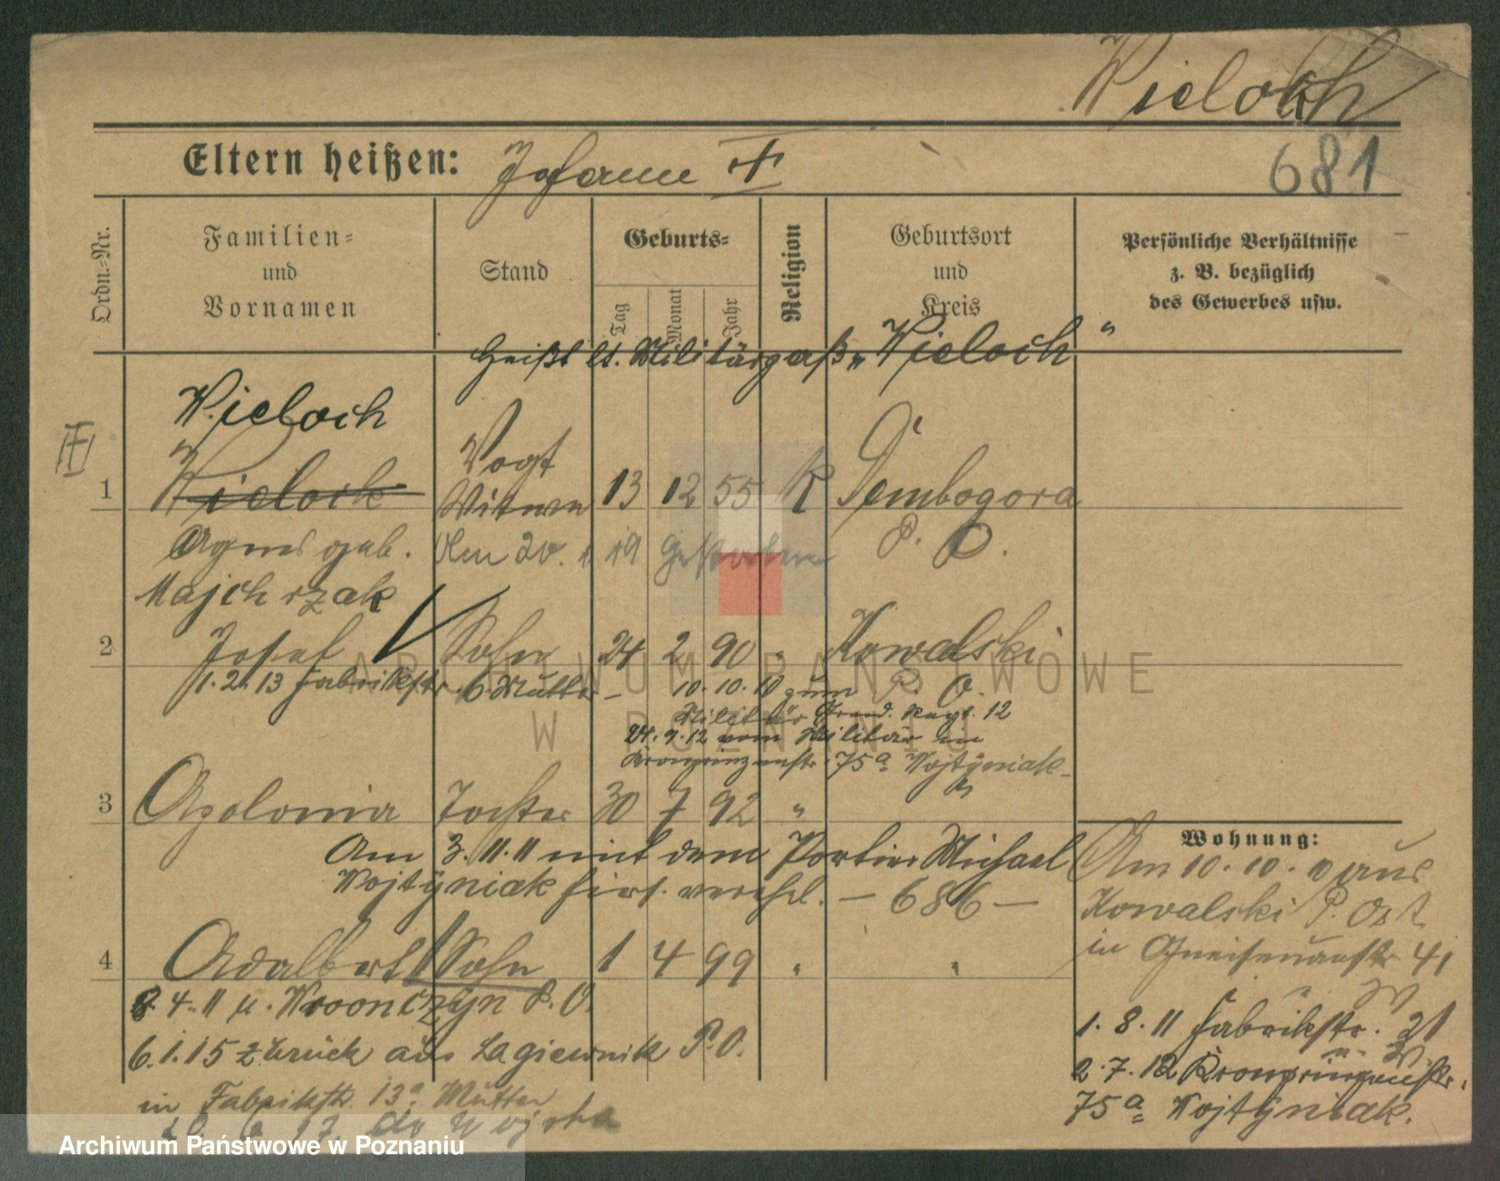 Wieloch
681
Eltern heißen: Johann
Ordn.-Nr.
Familien-
und
Vornamen
Stand
Geburts-
Tag
Monat
Jahr
Religion
Geburtsort
und
Kreis
Persönliche Verhältnisse
z. B. bezüglich
des Gewerbes usw.
heißt lt. Militärpaß „Wieloch"
Wieloch
1 Wielock Vogt Witwe 13 12 55 K Dembogora
Agnes geb. Am 20. 1 19 gestorben P. O.
Majchrzak
2 Josef Sohn 24 2 90 " Kowalski
1. 2. 13 Fabrikstr. 6. Mutter – 10. 10. 10 zum P. O.
Militär Gren. Regt. 12
24. 9. 12 vom Militär in
Kronprinzenstr. 75a Wojtyniak
3 Apolonia Tochter 30 7 92 "
Am 3. 11. 11 mit dem Portier Michael
Wojtyniak hier verehel. — 686 —
4 Adalbert Sohn 1 4 99 " "
4. 11 Wronczyn P. O.
6. 1. 15 zurück aus Lagiewnik P. O.
in Fabrikstr. 13a Mutter
Wohnung:
Am 10. 10. 10 aus
Kowalski P. Ost
in Gneisenaustr. 41
1. 8. 11 Fabrikstr. 21
2. 7. 12 Kronprinzenstr.
75a Wojtyniak.
ARCHIWUM PAŃSTWOWE
W POZNANIU
Archiwum Państwowe w Poznaniu